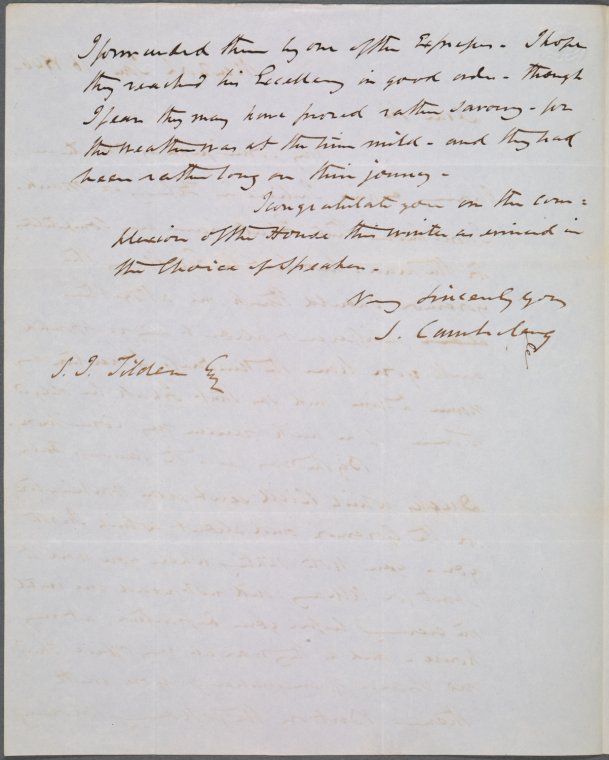 I forwarded them by one of the Expresses - I hope
they reached his Excellency in good order - though
I fear they may have proved rather savoury - for
the weather was at the time mild - and they had
been rather long on their journey -
I congratulate you on the com=
plexion of the House this winter as evinced in
the Choice of Speaker -
Very Sincerely yours
S. J. Tilden Esq